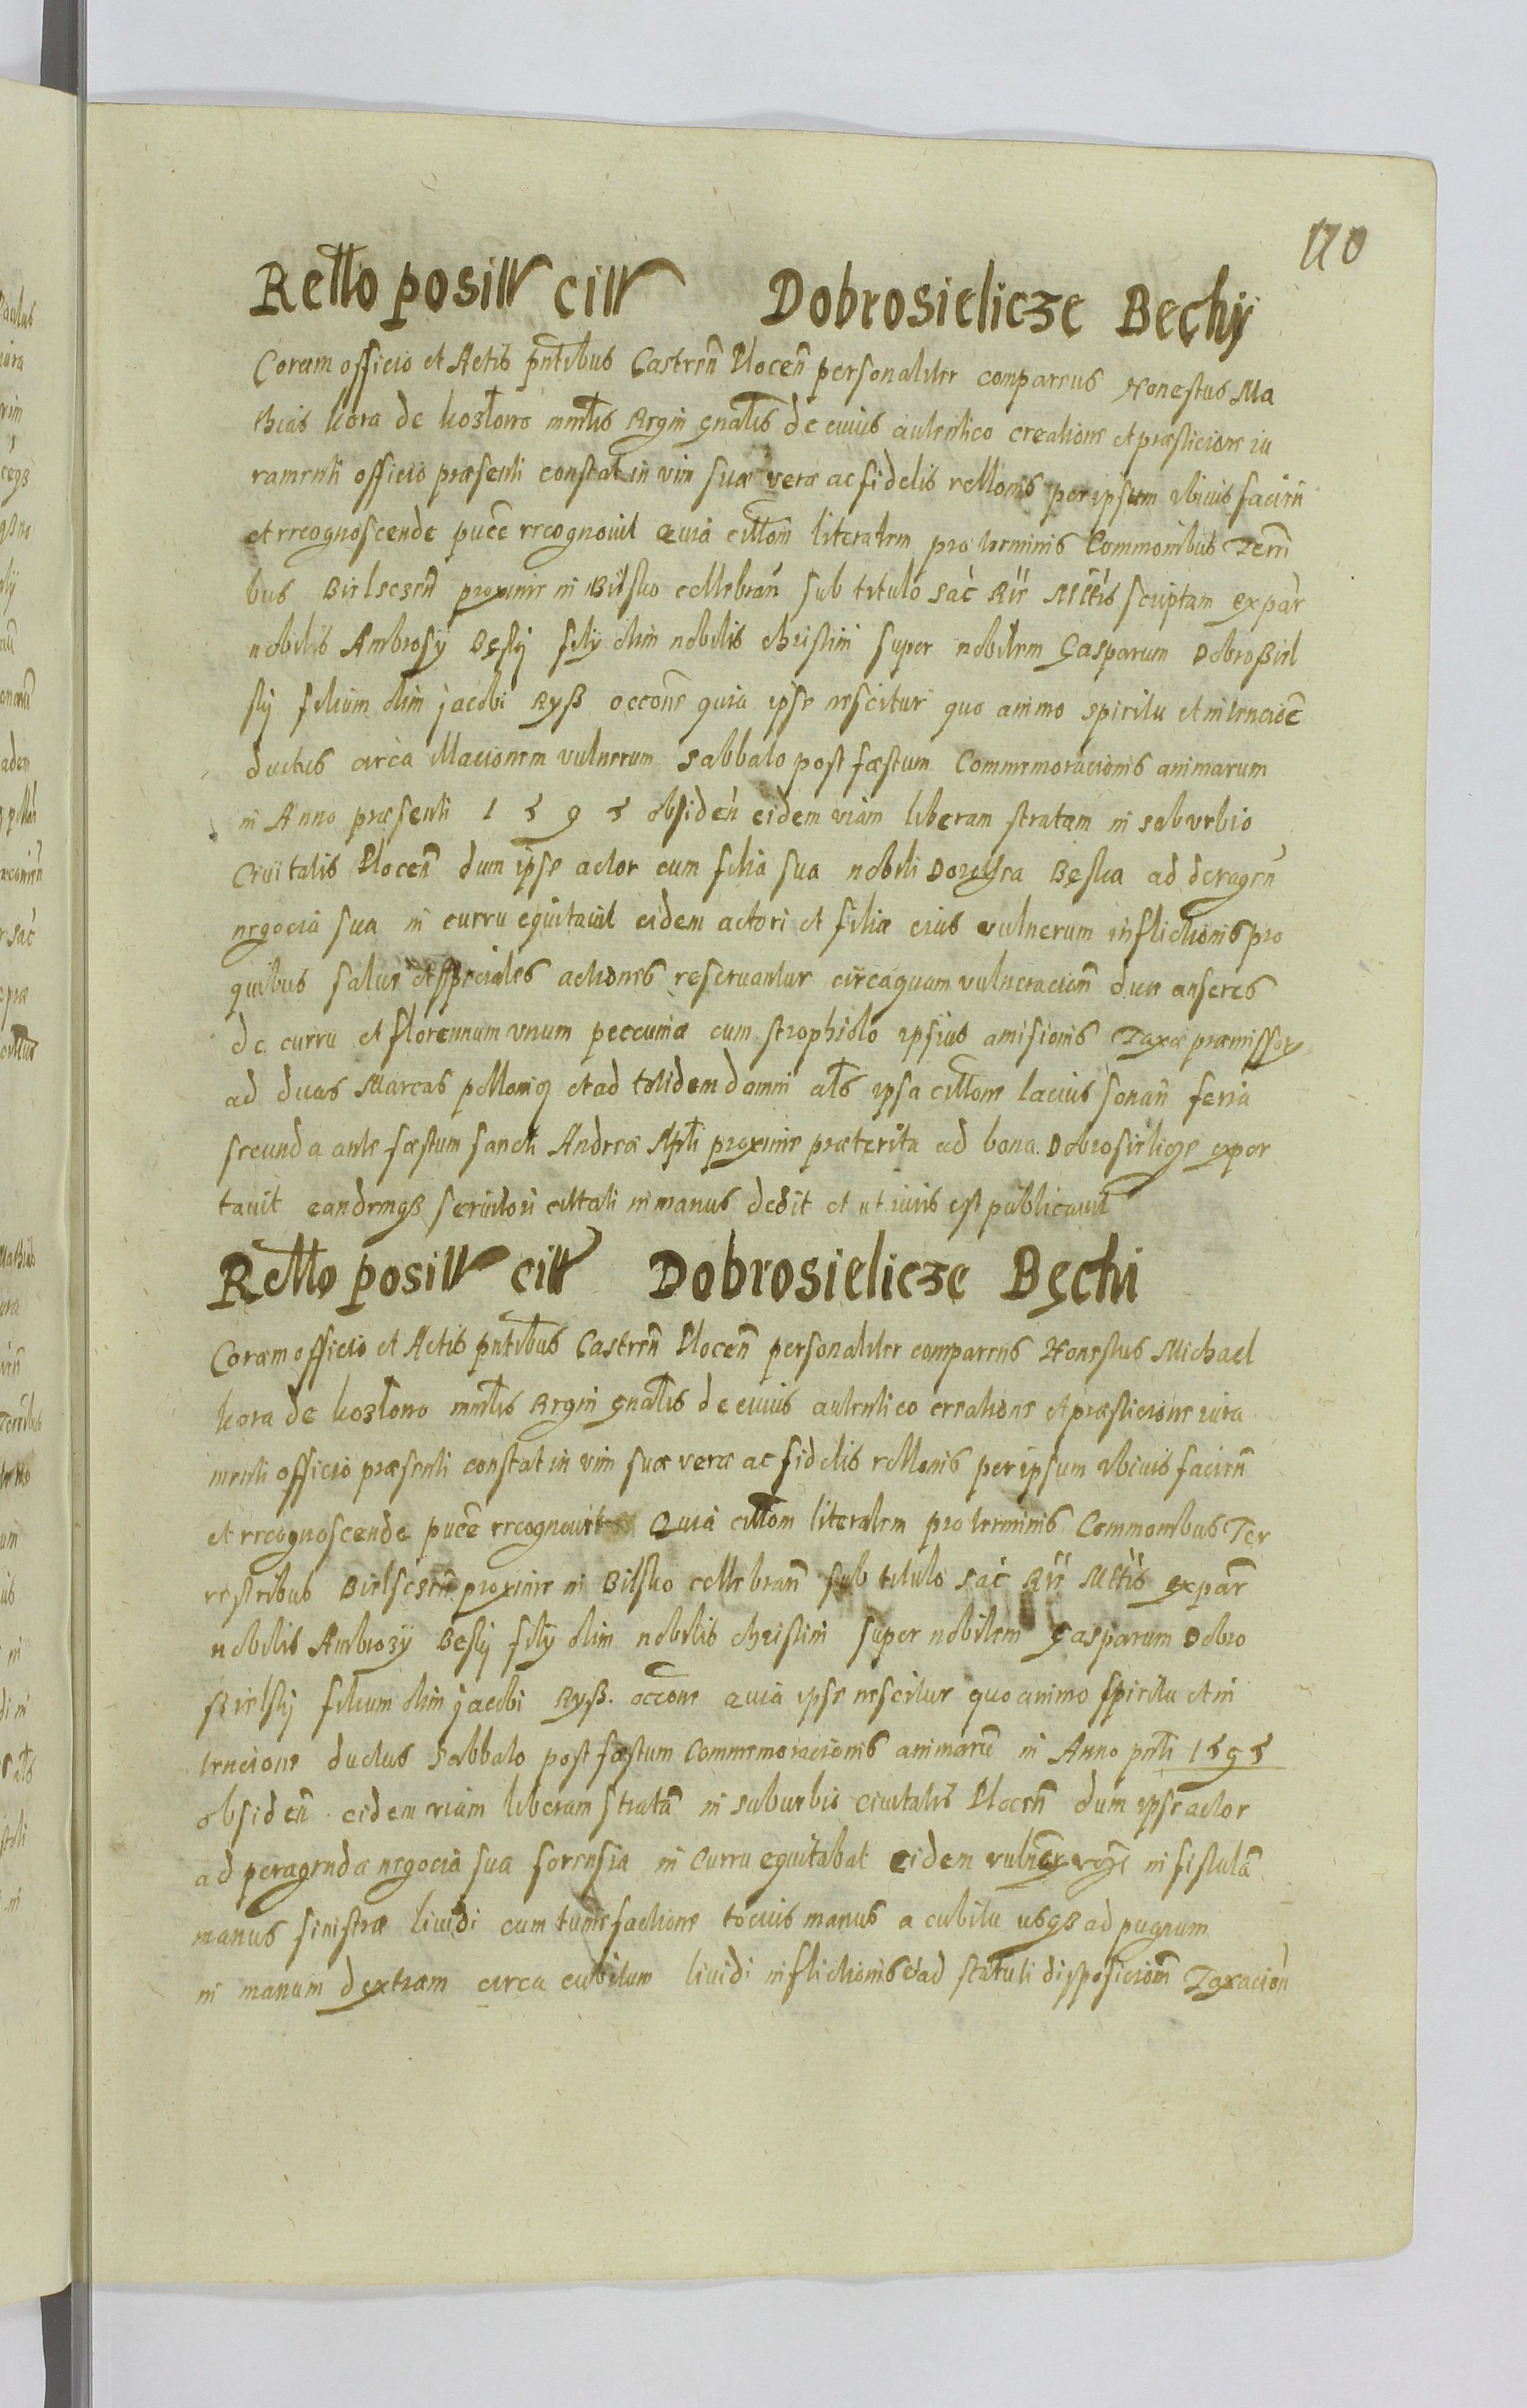 170
Retto positt citt Dobrosielicze Bęchij
Coram officio et Actis pntibus Castren Plocen personaliter comparens Honestus Ma
thias kora de kozłowo mnrlis Regni gnalis de cuius autentico creatione et præsticione iu
ramenti officio præsenti constat in vim suæ veræ ac fidelis rellonis per ipsum vbiuis facien
et recognoscende puce recognouit Quia cittom literalem pro terminis Commonibus Terri
bus Bielscen proxime in Bilsko cellebran sub titulo sac Rii Mttis scriptam ex par
nobilis Ambrosij Bęsky filij olim nobilis christini super nobilem Gasparum Dobroßiel
skij filium olim jacobi Ryß occone quia ipse nescitur quo animo spiritu et intencioe
ductus circa illacionem vulnerum Sabbato post fæstum Commemoracionis animarum
in Anno præsenti 1595 obsiden eidem viam liberam stratam in suburbio
Ciuitatis Plocen dum ipse actor cum filia sua nobili Dorothea Bęska ad peragen
negocia sua in curru equitauit eidem actori et filiæ eius vulnerum inflictionis pro
quibus saluæ et speciales actiones reseruantur circa quam vulneracion duu anseres
de curru et florennum vnum peccuniæ cum strophiolo ipsius amisionis Taxæ præmissor
ad duas Marcas pollonig et ad totidem damni als ipsa cittone lacius sonan feria
secunda ante fæstum sancti Andreæ Apli proxime præterita ad bona Dobrosielicze expor
tauit eandemqß seruitori cittati in manus dedit et ut iuris est publicauit
Retto positt citt Dobrosielicze Bęchi
Coram officio et Actis pntibus Castren Plocen personaliter comparens Honestus Michael
kora de kozłowo mnrlis Regni gnalis de cuius autentico creatione et præsticione iura
menti officio præsenti constat in vim suæ veræ ac fidelis rellonis per ipsum vbiuis facien
et recognoscende puce recognouit Quia cittom literalem pro terminis Commonibus Ter
restribus Bielscen proxime in Bilsko cellebran sub titulo sac Rii Mttis ex par
nobilis Ambrozij Beskij filij olim nobilis christini super nobilem Gasparum Dobro
ßielskij filium olim jacobi Ryß. occone Quia ipse nescitur quo animo spiritu et in
tencione ductus Sabbato post fæstum Commemoracionis animaru in Anno pnti 1595
obsiden eidem viam liberam strata in suburbio ciuitatis Plocen dum ipse actor
ad peragenda negocia sua forensia in curru equitabat eidem in fistula
manus sinistræ liuidi cum tumefactione tocius manus a cubitu usqß ad pugnum
in manum dextram circa cubitum liuidi inflictionis ad statuti disposiciom Taxacion